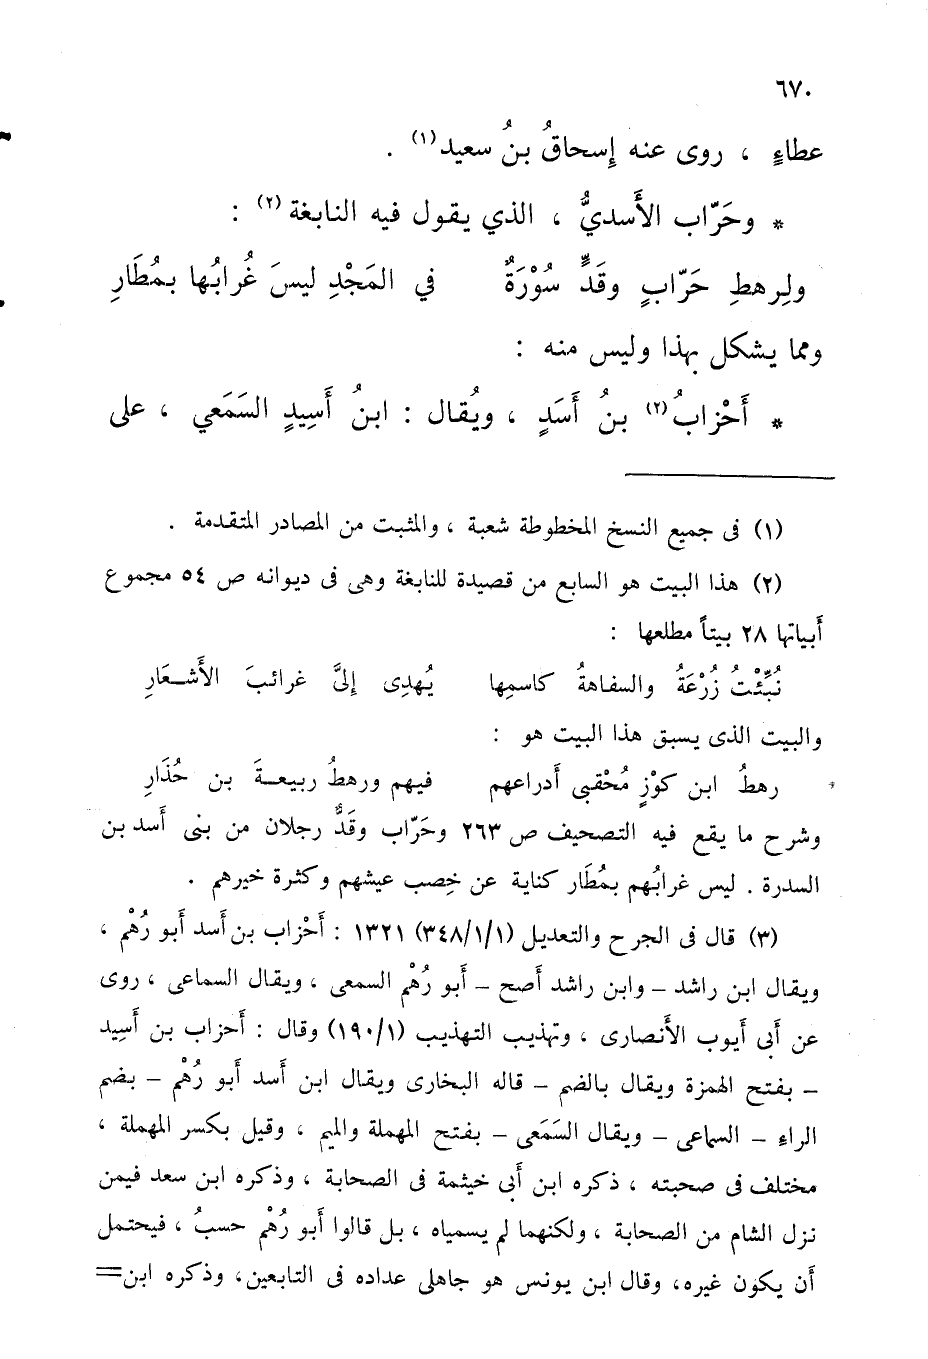 ٦٧٠
عطاءٍ ، روى عنه إسحاقُ بنُ سعيد(١) .
* وحَرّاب الأَسديُّ ، الذي يقول فيه النابغة(٢) :
ولِرهطِ حَرّابٍ وقَدٍّ سُوْرَةٌ في المَجْدِ ليسَ غُرابُها بمُطَارِ
ومما يشكل بهذا وليس منه :
* أَحْزابُ(٢) بنُ أَسَدٍ ، ويُقال : ابنُ أَسِيدٍ السَمَعي ، على
(١) فى جميع النسخ المخطوطة شعبة ، والمثبت من المصادر المتقدمة .
(٢) هذا البيت هو السابع من قصيدة للنابغة وهى فى ديوانه ص ٥٤ مجموع
أبياتها ٢٨ بيتاً مطلعها :
نُبِّئْتُ زُرْعَةُ والسفاهةُ كاسمِها يُهدِى إلىَّ غرائبَ الأَشـعَارِ
والبيت الذى يسبق هذا البيت هو :
رهطُ ابن كوْزٍ مُحْقبى أدراعهم فيهم ورهطُ ربيعـةَ بن حُذَارِ
وشرح ما يقع فيه التصحيف ص ٢٦٣ وحَرّاب وقَدٌّ رجلان من بنى أسد بن
السدرة . ليس غرابُهم بمُطَار كناية عن خِصب عيشهم وكثرة خيرهم .
(٣) قال فى الجرح والتعديل (٣٤٨/١/١) ١٣٢١ : أَحْزاب بن أسد أبو رُهْم ،
ويقال ابن راشد – وابن راشد أصح – أبو رُهْم السمعى ، ويقال السماعى ، روى
عن أبى أيوب الأنصارى ، وتهذيب التهذيب (١٩٠/١) وقال : أحزاب بن أَسِيد
– بفتح الهمزة ويقال بالضم – قاله البخارى ويقال ابن أسد أبو رُهْم – بضم
الراء – السماعى – ويقال السَمَعى – بفتح المهملة والميم ، وقيل بكسر المهملة ،
مختلف فى صحبته ، ذكره ابن أبى خيثمة فى الصحابة ، وذكره ابن سعد فيمن
نزل الشام من الصحابة ، ولكنهما لم يسمياه ، بل قالوا أبو رُهْم حسبُ ، فيحتمل
أن يكون غيره، وقال ابن يونس هو جاهلى عداده فى التابعين، وذكره ابن=